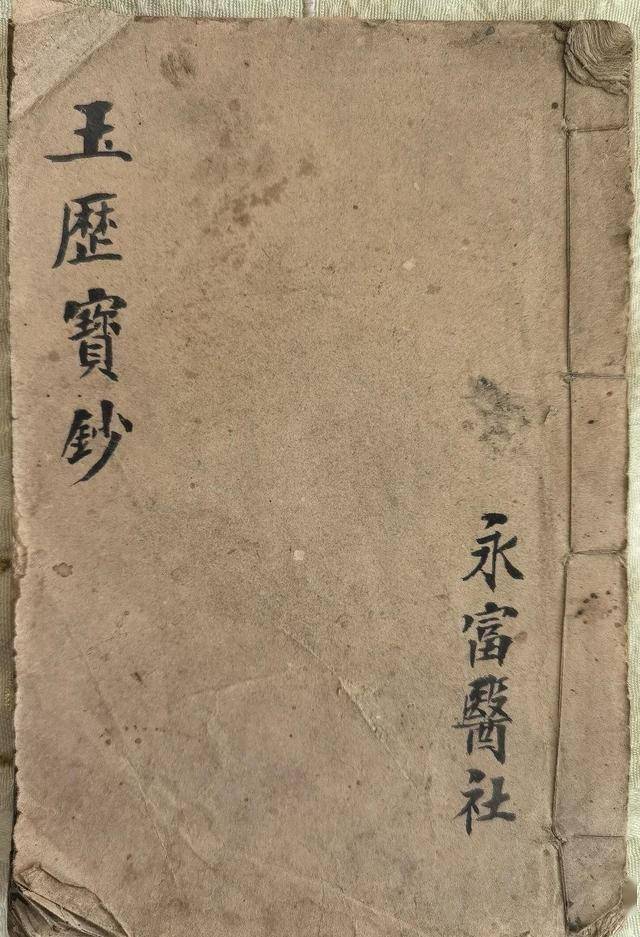 玉歷寶鈔
永富醫社